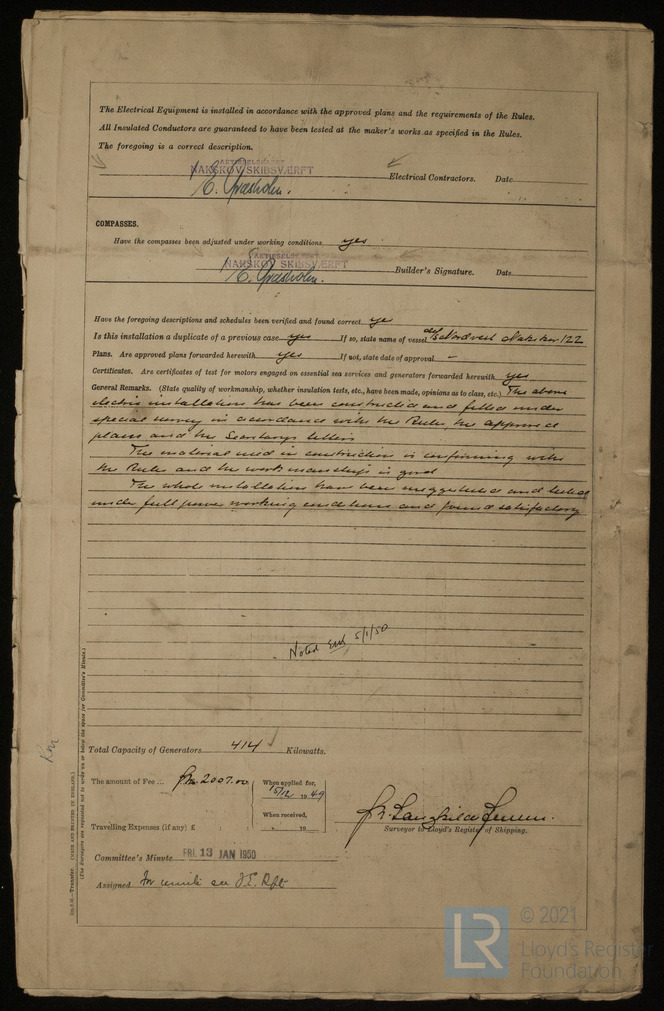 The Electrical Equipment is installed in accordance with the approved plans and the requirements of the Rules.
All Insulated Conductors are guaranteed to have been tested at the maker's works as specified in the Rules.
The foregoing is a correct description.
AKTIESELSKABET
NAKSKOV SKIBSVÆRFT
Electrical Contractors. Date
COMPASSES.
Have the compasses been adjusted under working conditions yes
AKTIESELSKABET
NAKSKOV SKIBSVÆRFT
Builder's Signature. Date
Have the foregoing descriptions and schedules been verified and found correct yes
Is this installation a duplicate of a previous case yes If so, state name of vessel Nakskov 122
Plans. Are approved plans forwarded herewith yes If not, state date of approval –
Certificates. Are certificates of test for motors engaged on essential sea services and generators forwarded herewith yes
General Remarks. (State quality of workmanship, whether insulation tests, etc., have been made, opinions as to class, etc.) The above
electric installation has been constructed and fitted under
special survey in accordance with the Rules, the approved
plans and the Secretarys letters
The material used in construction is confirming with
the Rules and the workmanship is good
The whole installation have been meggertested and tested
under full power working conditions and found satisfactory
Noted 5/1/50
Total Capacity of Generators 414 Kilowatts.
The amount of Fee ... Kr. 2007.00
When applied for, 15/12 1949
When received, 19
Travelling Expenses (if any) £
Surveyor to Lloyd's Register of Shipping.
Committee's Minute FRI. 13 JAN 1950
Assigned
(MADE AND PRINTED IN ENGLAND.)
(The Surveyors are requested not to write on or below the space for Committee's Minute.)
© 2021
LR
Lloyd's Register
Foundation